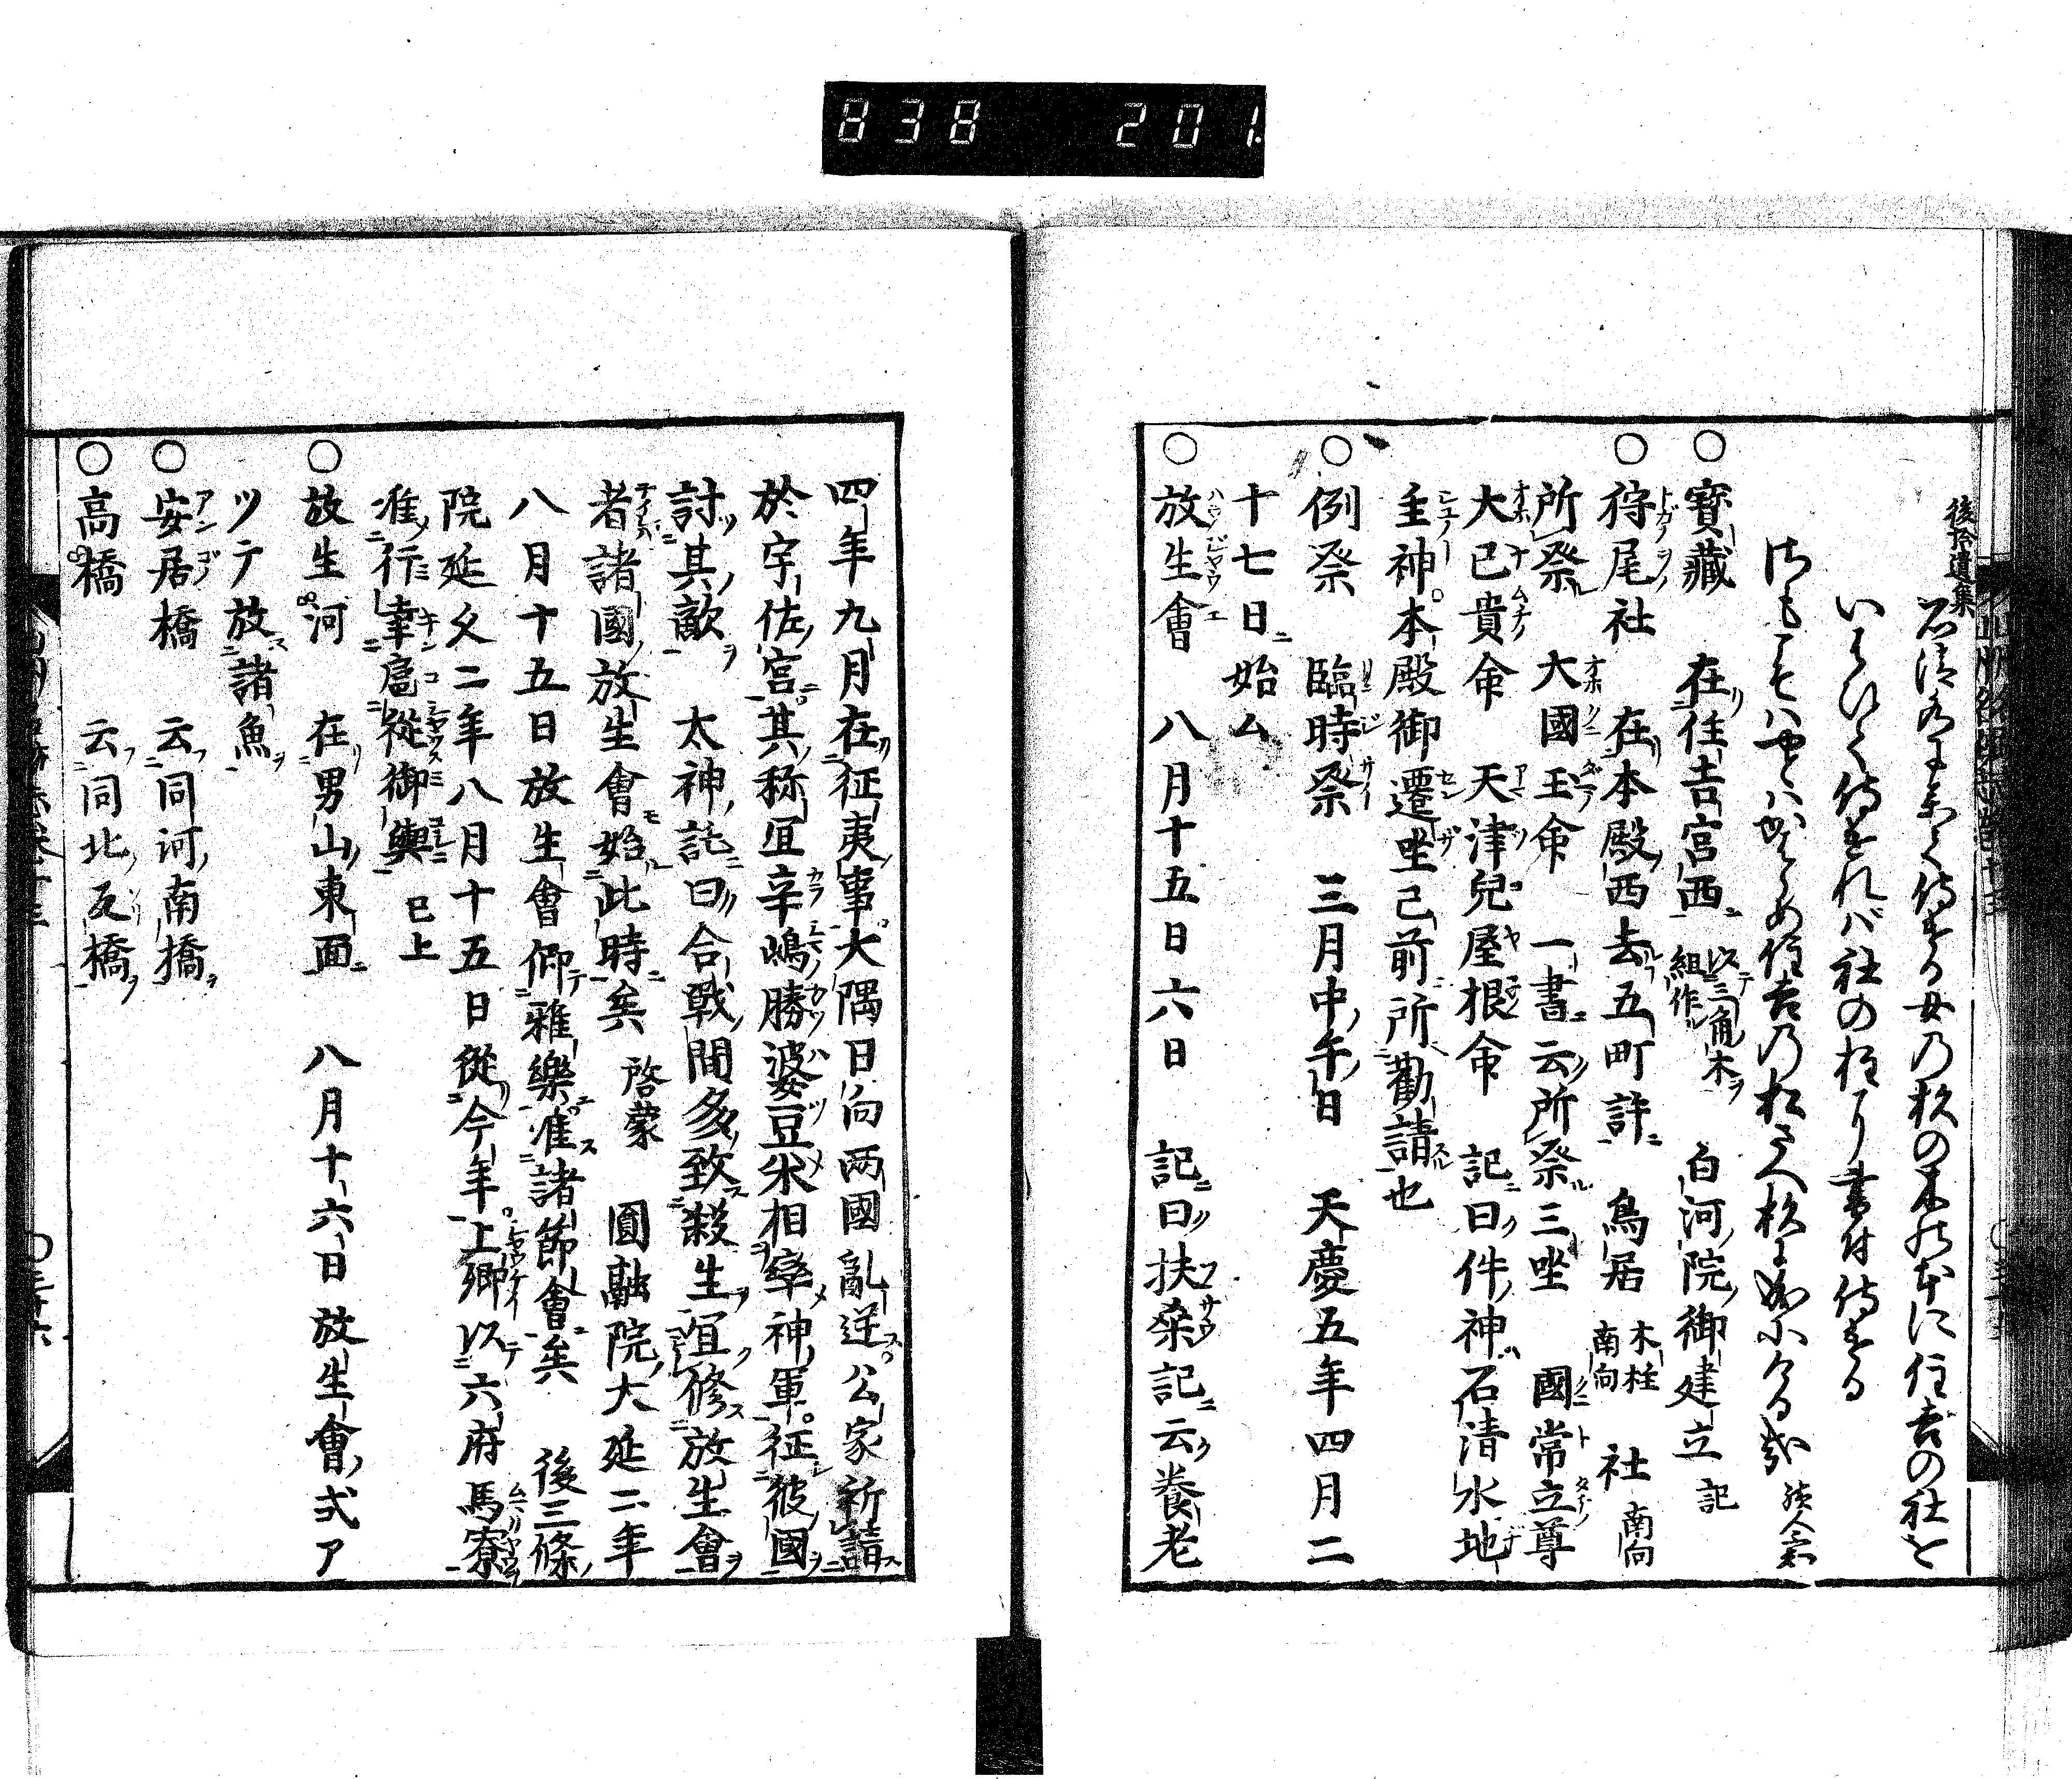 838 201
後拾遺集
石清水に參て侍ける女の杉の木のもとに住吉の社を
いはひて侍ければ社の柱に書付侍ける
さもこそはやとはかはらめ住吉の松さへ杉になりにける哉 読人不知
○寶藏 在住吉宮西 以三角木組作 白河院御建立 記
○狩尾社 在本殿西去五町許 鳥居 木柱南向 社 南向
所祭 大國玉命 一書云所祭三坐 國常立尊
大已貴命 天津兒屋根命 記曰件神石清水地
主神本殿御遷坐已前所勸請也
○例祭 臨時祭 三月中午日 天慶五年四月二
十七日始ム
○放生會 八月十五日六日 記曰扶桑記云養老
四年九月在征夷事大隅日向兩國亂逆公家祈請
於宇佐宮其称冝辛嶋勝婆豆米相率神軍征彼國
討其敵 太神託曰合戰間多致殺生冝修放生會
者諸國放生會始此時矣 啓蒙 圓融院大延二年
八月十五日放生會仰雅樂准諸節會矣 後三條
院延久二年八月十五日從今年上卿以六府馬寮
准行幸扈從御輿 已上
○放生河 在男山東面 八月十六日放生會式ア
ツテ放諸魚
○安居橋 云同河南橋
○高橋 云同北反橋